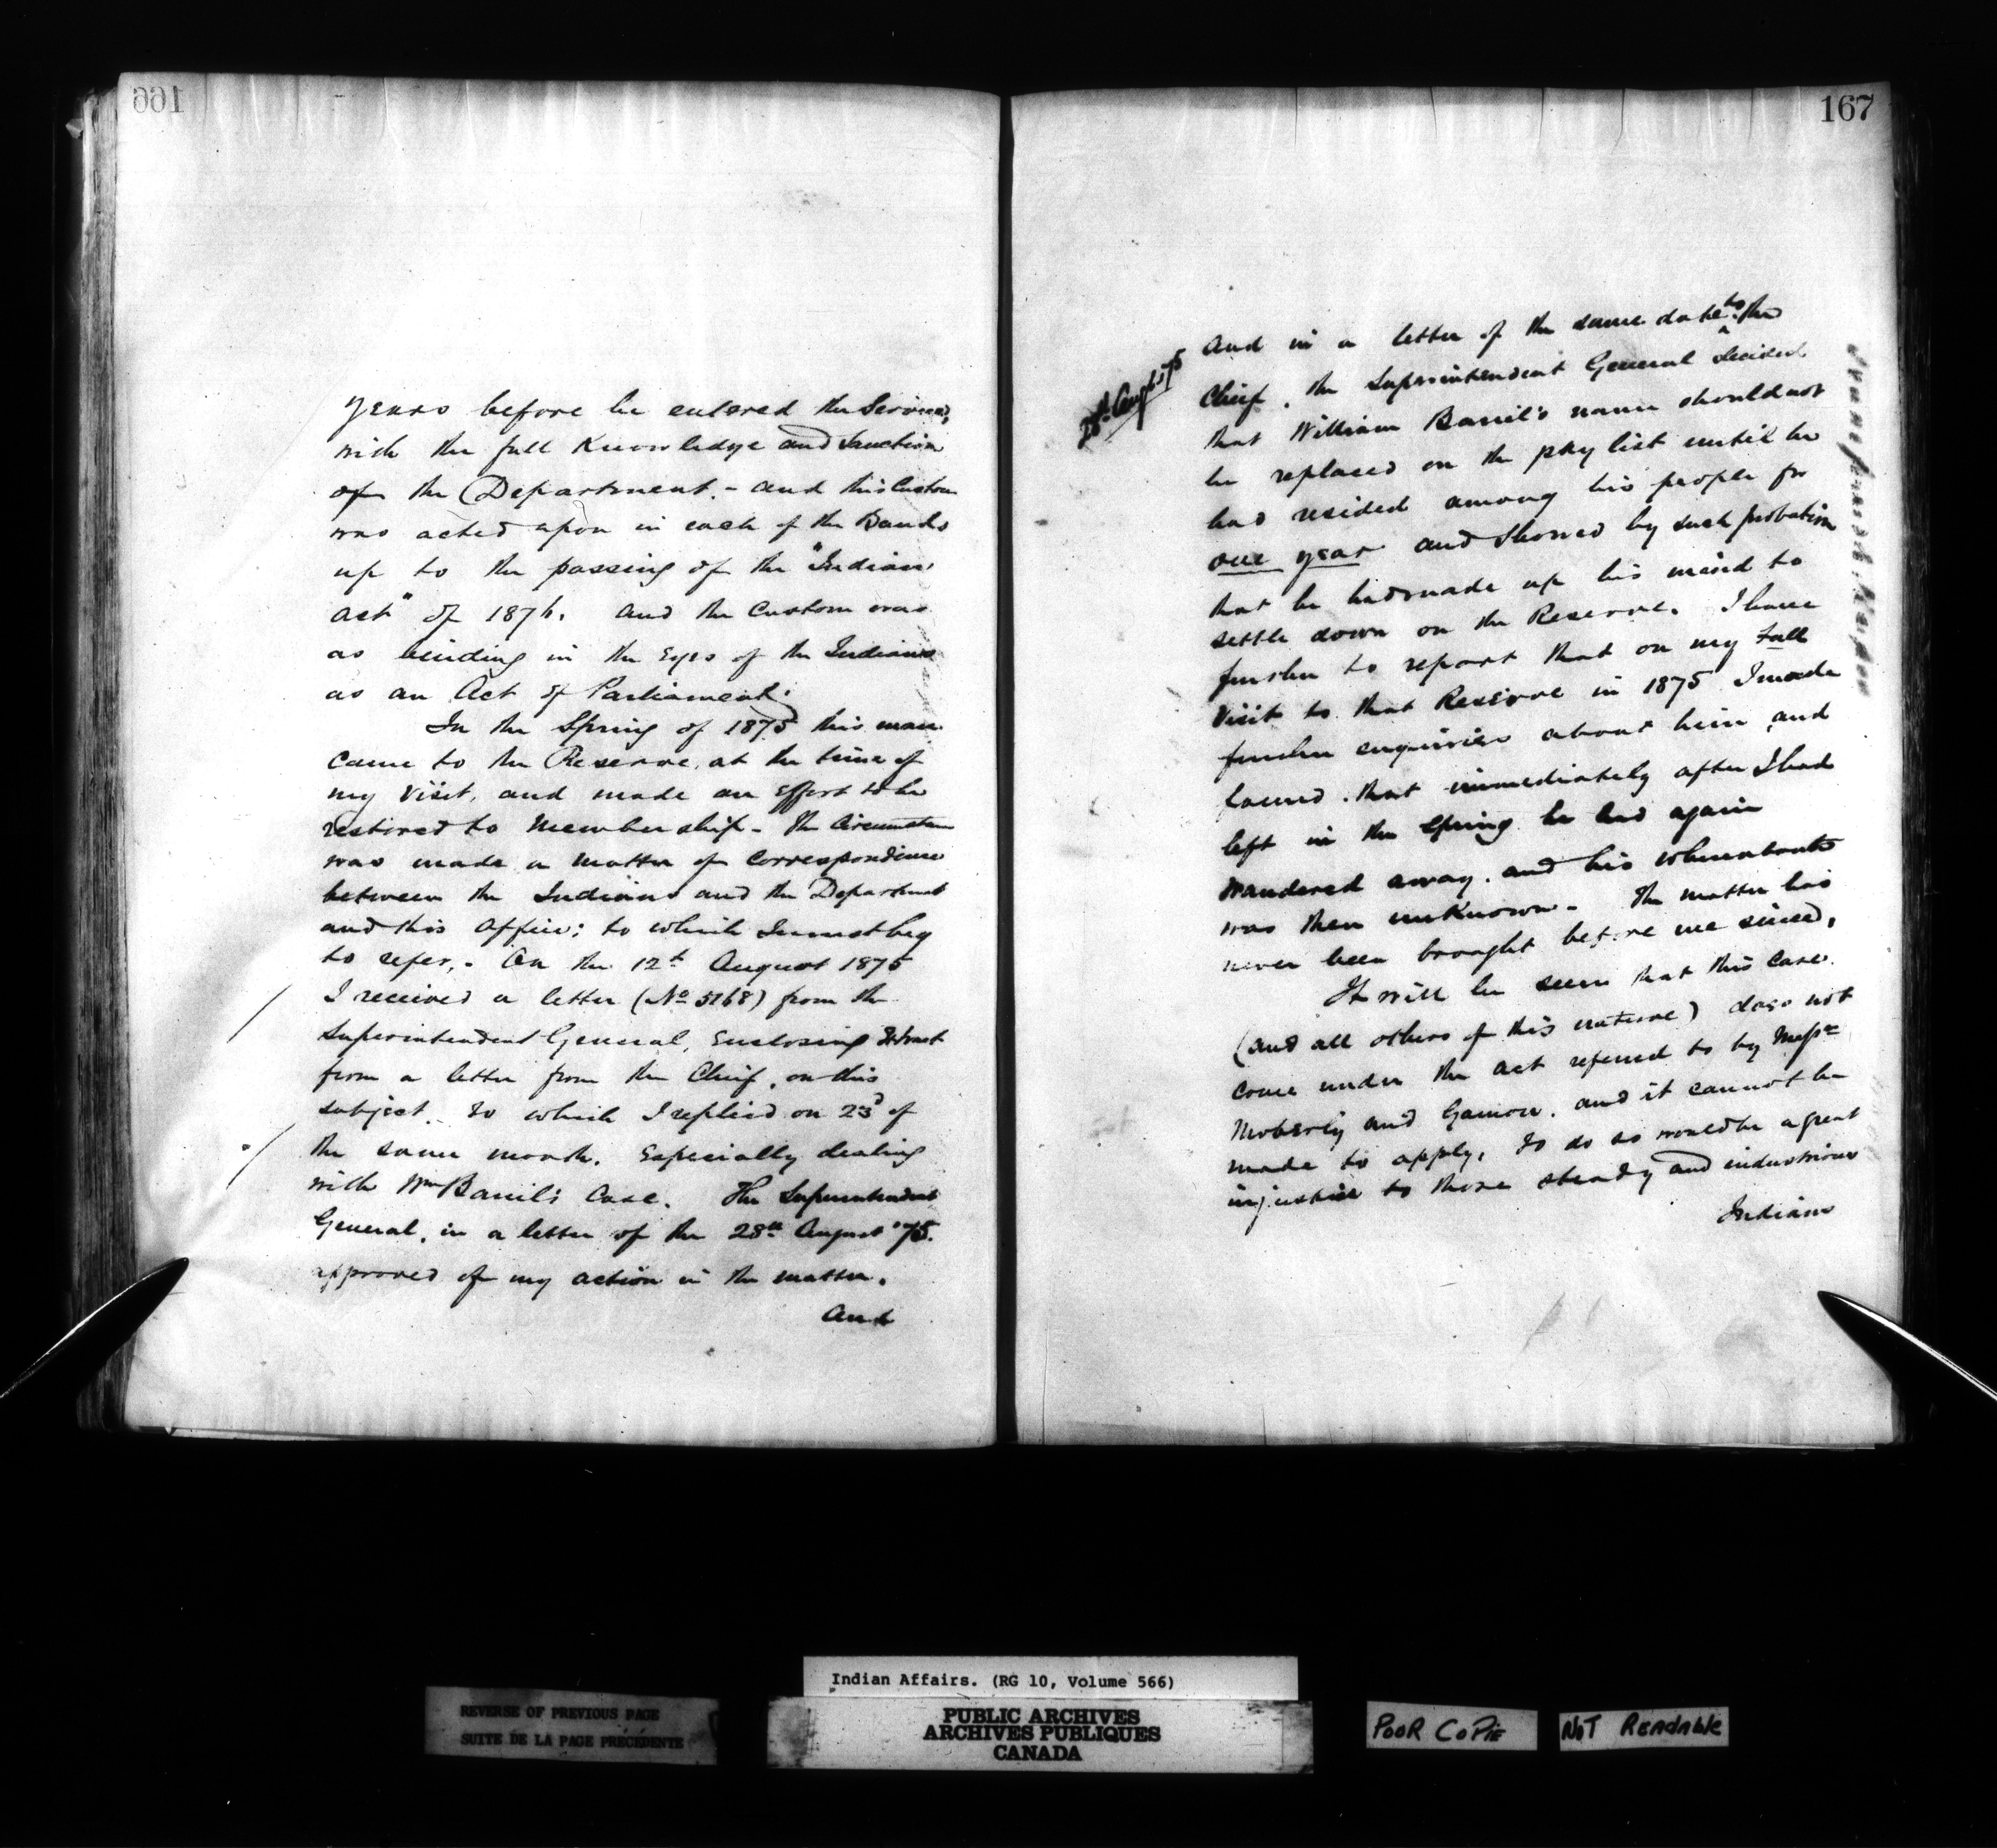 166
years before he entered the Service,
with the full Knowledge and Sanction
of the Department. - and this Custom
was acted upon in each of the Bands
up to the passing of the "Indian
Act" of 1876. and the Custom was
as binding in the Eyes of the Indians
as an Act of Parliament.
In the Spring of 1875 this man
came to the Reserve, at the time of
my Visit, and made an Effort to be
restored to Membership - The Circumstance
was made a matter of Correspondence
between the Indians and the Department
and this Office; to which I must beg
to refer. - On the 12th August 1875
I received a letter (No 5768) from the
Superintendent General, Enclosing Extract
from a letter from the Chief, on this
subject. To which I replied on 23d of
the same month. Especially dealing
with Wm Banil's Case. The Superintendent
General, in a letter of the 28th August '75.
approved of my action in the matter.
And
167
28th Aug't '75
And in a letter of the same date to the
Chief, the Superintendent General decided
that William Banil's name should not
be replaced on the pay list until he
had resided among his people for
one year and Showed by such probation
that he had made up his mind to
settle down on the Reserve. I have
further to report that on my Fall
Visit to that Reserve in 1875 I made
further enquiries about him and
found that immediately after I had
left in the Spring he had again
wandered away, and his whereabouts
was then unknown - The matter has
never been brought before me since,
It will be seen that this Case
(and all others of this nature) does not
come under the Act referred to by Messrs
Moberly and Gamon. and it cannot be
made to apply, To do so would be a great
injustice to those steady and industrious
Indians
Indian Affairs. (RG 10, Volume 566)
REVERSE OF PREVIOUS PAGE
SUITE DE LA PAGE PRÉCÉDENTE
PUBLIC ARCHIVES
ARCHIVES PUBLIQUES
CANADA
POOR COPIE
NOT READABLE